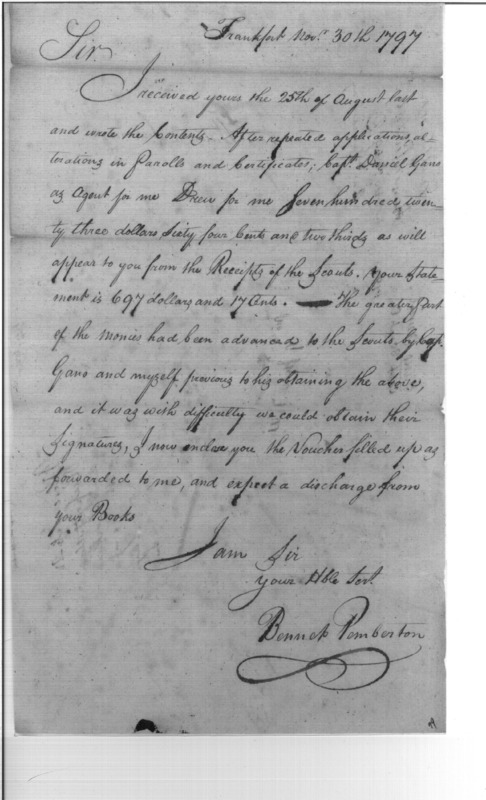 Frankfort Novr. 30th 1797
Sir
I received yours the 25th of August last
and wrote the Contents. After repeated applications, al-
terations in Parolls and Certificates; Capt. Daniel Gano
as Agent for me Drew for me Seven hundred twen-
ty three dollars Sixty four Cents and two thirds as will
appear to you from the Receipts of the Scouts. Your State-
ment is 697 dollars and 17 Cents. — The greater Part
of the monies had been advanced to the Scouts by Capt.
Gano and myself previous to his obtaining the above,
and it was with difficulty we could obtain their
Signatures, I now enclose you the Voucher filled up as
forwarded to me, and expect a discharge from
your Books
I am Sir
Your Hble Sert.
Bennet Pemberton